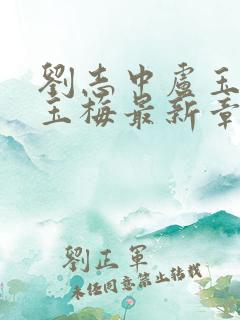 劉志中盧玉
玉梅最新章
劉正軍
未經同意禁止轉載